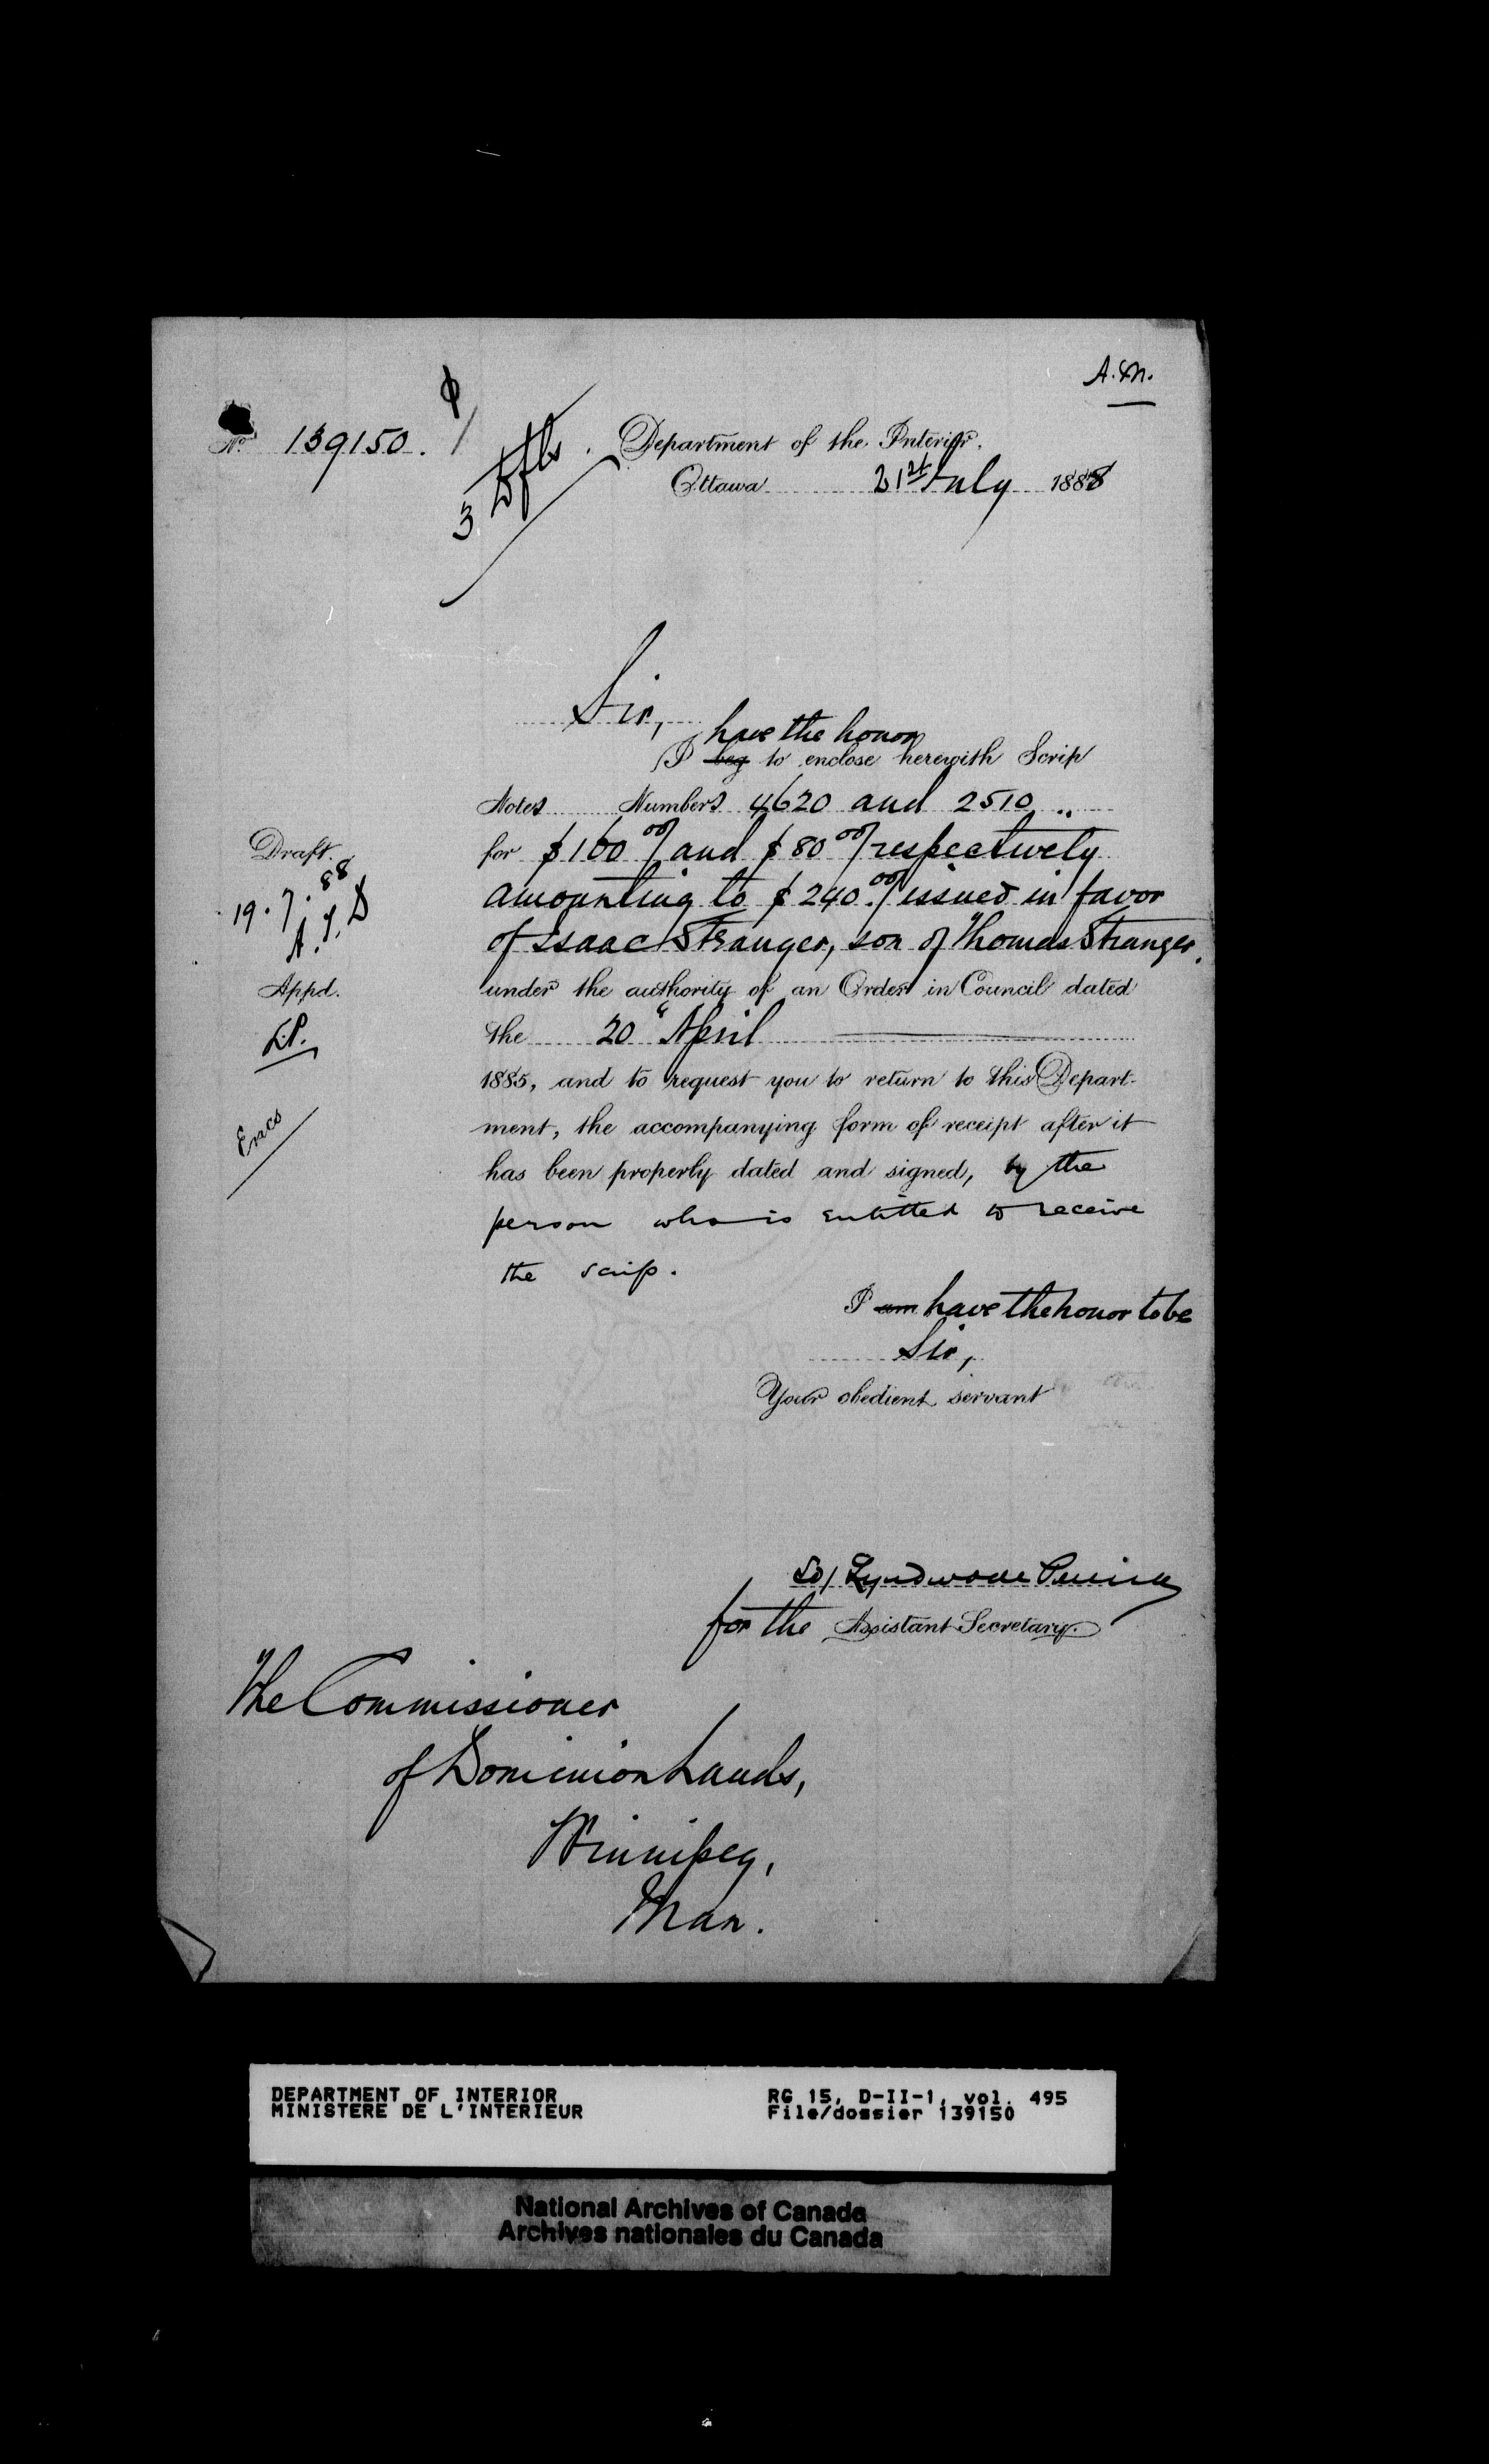 A.M.
No. 139150.
3 Dfts.
Department of the Interior.
Ottawa 21st July 1888
Sir,
have the honor
I beg to enclose herewith Scrip
Notes Numbers 4620 and 2510 "
for $160 00/ and $80 00/ respectively
Draft.
19.7.88
amounting to $240.00/ issued in favor
of Isaac Stranger, son of Thomas Stranger,
Appd.
under the authority of an Order in Council dated
L.P.
the 20" April
1885, and to request you to return to this Depart-
Encs
ment, the accompanying form of receipt after it
has been properly dated and signed, by the
person who is entitled to receive
the scrip.
I am have the honor to be
Sir,
Your obedient servant
Sd/ Lyndwode Pereira
for the Assistant Secretary.
The Commissioner
of Dominion Lands,
Winnipeg,
Man.
DEPARTMENT OF INTERIOR
MINISTERE DE L'INTERIEUR
RG 15, D-II-1, vol. 495
File/dossier 139150
National Archives of Canada
Archives nationales du Canada